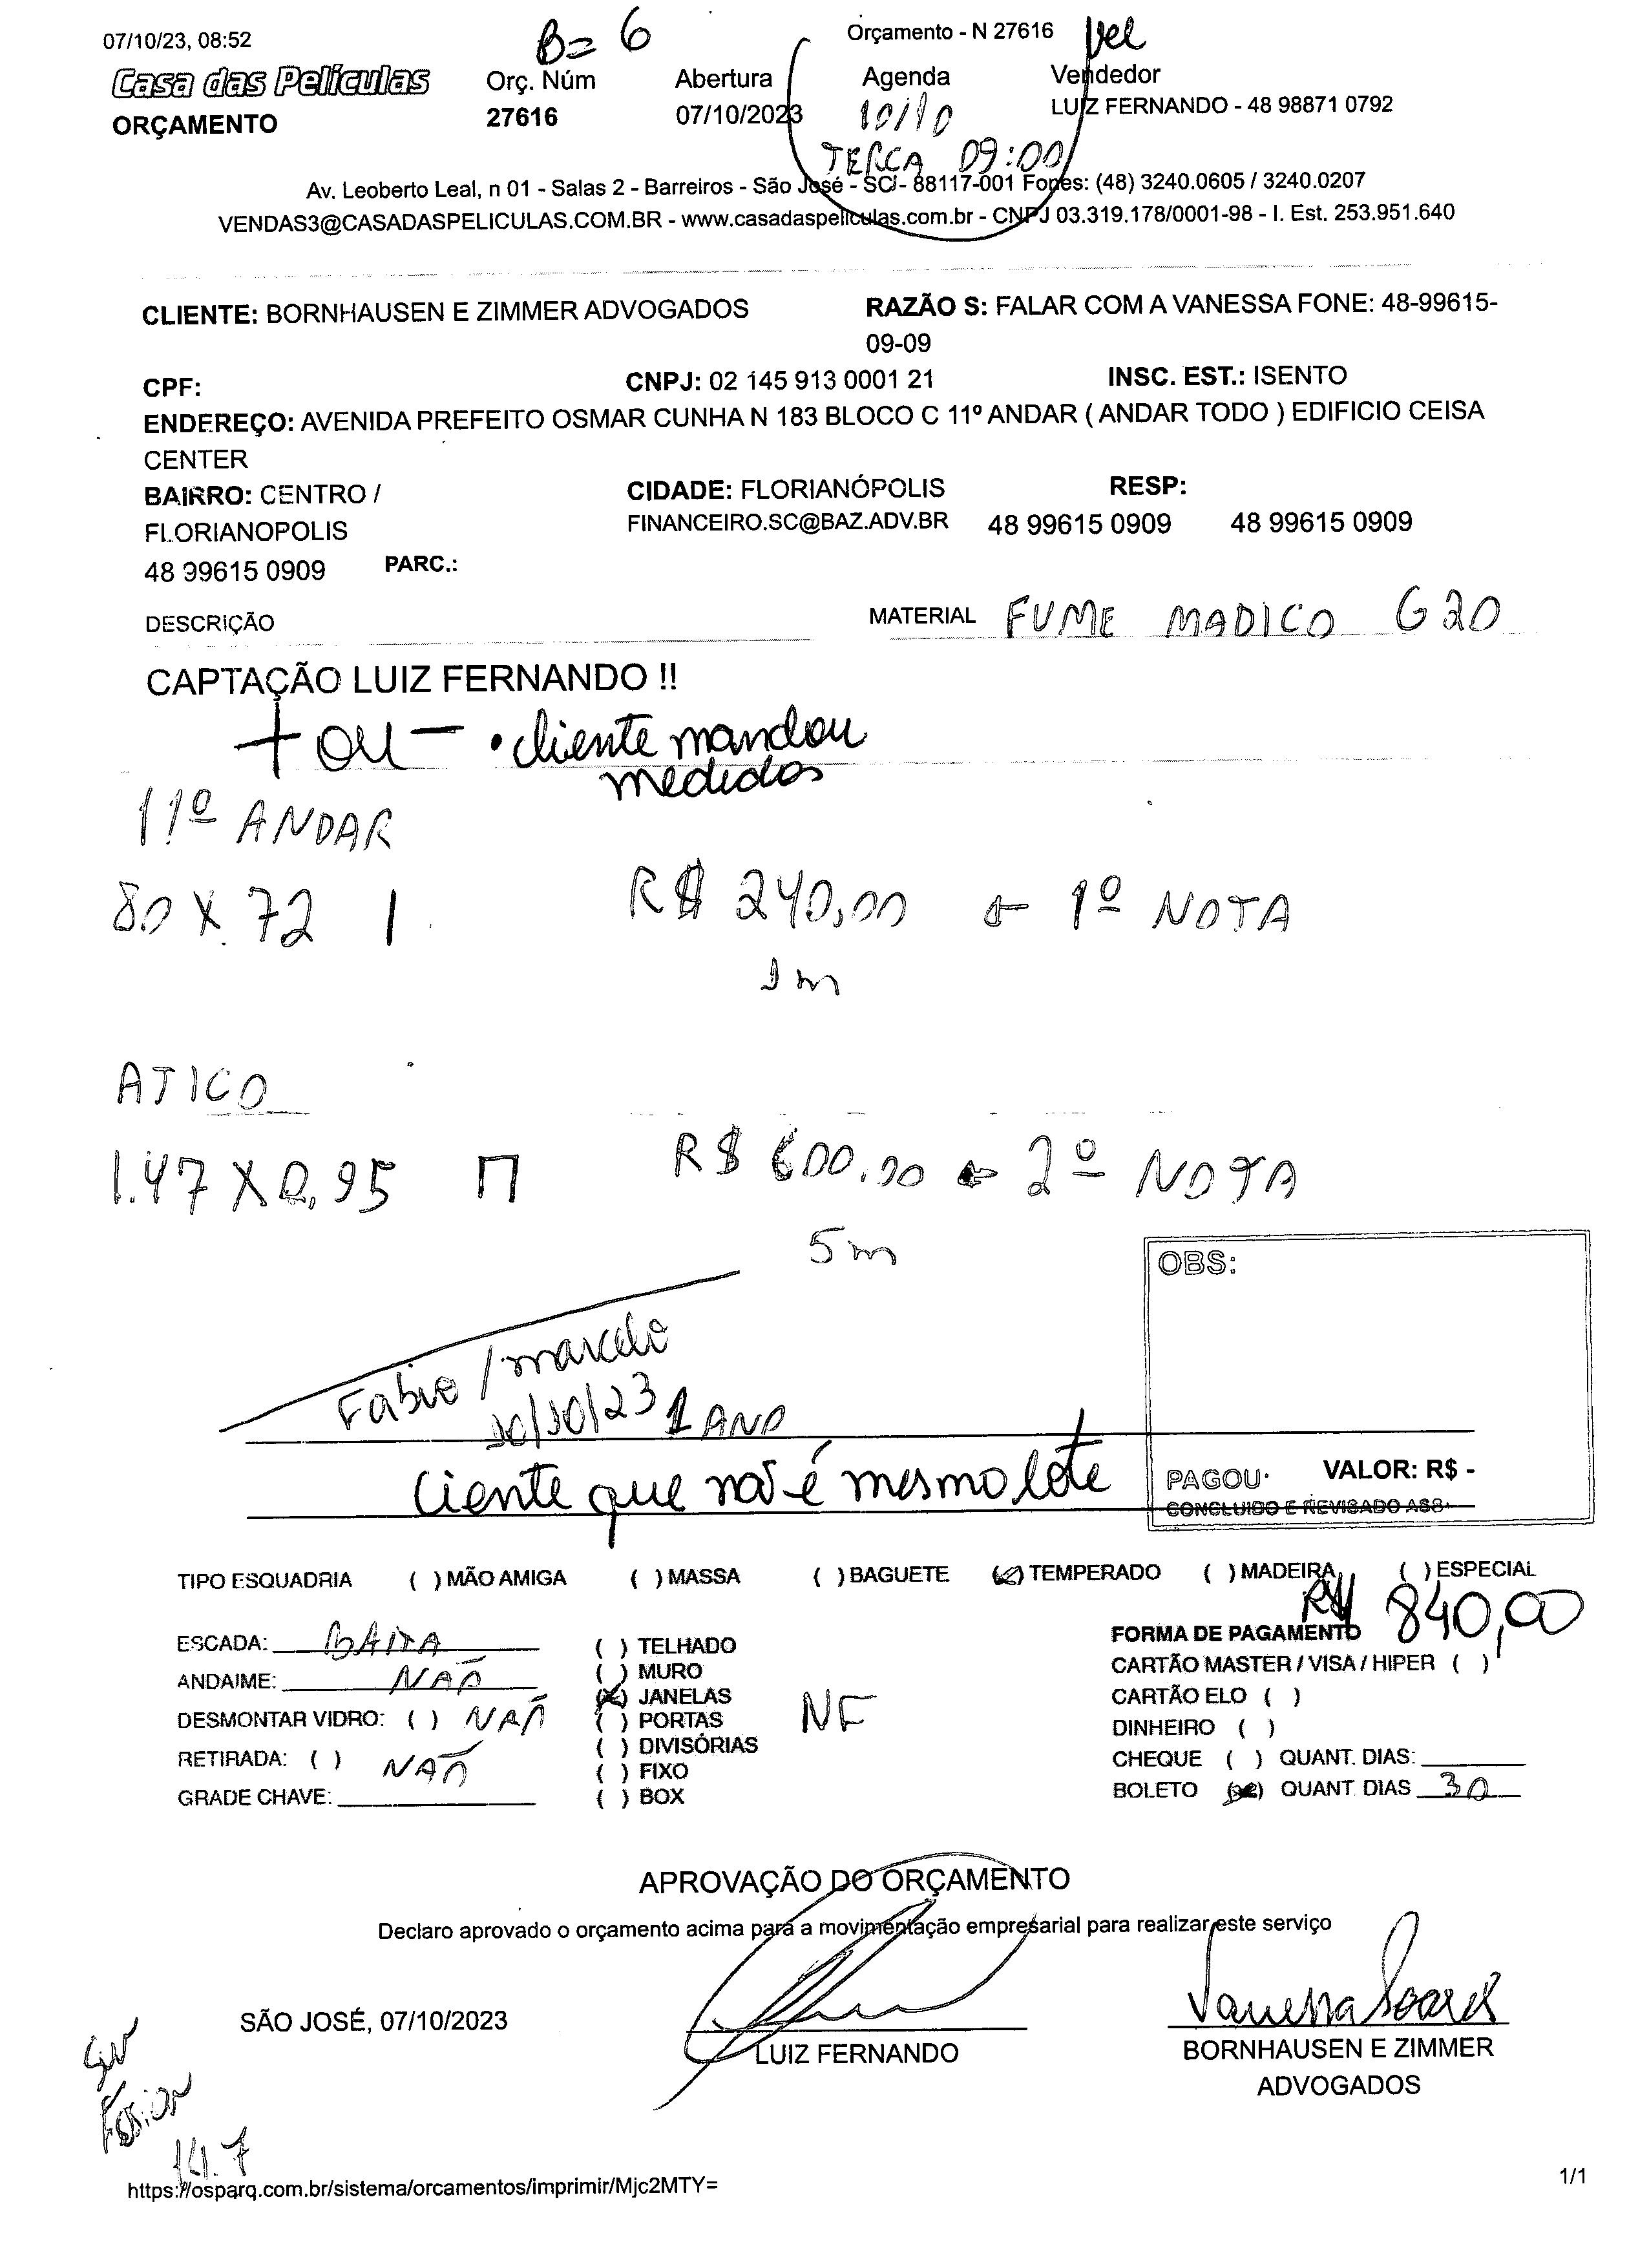 07/10/23, 08:52
B= 6
Orçamento - N 27616
Casa das Películas
Orç. Núm
Abertura
Agenda
Vendedor
ORÇAMENTO
27616
07/10/2023
10/10
LUIZ FERNANDO - 48 98871 0792
TERCA 09:00
Av. Leoberto Leal, n 01 - Salas 2 - Barreiros - São José - SC - 88117-001 Fones: (48) 3240.0605 / 3240.0207
VENDAS3@CASADASPELICULAS.COM.BR - www.casadaspeliculas.com.br - CNPJ 03.319.178/0001-98 - I. Est. 253.951.640
CLIENTE: BORNHAUSEN E ZIMMER ADVOGADOS
RAZÃO S: FALAR COM A VANESSA FONE: 48-99615-
09-09
CPF:
CNPJ: 02 145 913 0001 21
INSC. EST.: ISENTO
ENDEREÇO: AVENIDA PREFEITO OSMAR CUNHA N 183 BLOCO C 11º ANDAR ( ANDAR TODO ) EDIFICIO CEISA
CENTER
BAIRRO: CENTRO /
CIDADE: FLORIANÓPOLIS
RESP:
FLORIANOPOLIS
FINANCEIRO.SC@BAZ.ADV.BR
48 99615 0909
48 99615 0909
48 99615 0909
PARC.:
DESCRIÇÃO
MATERIAL FUME MADICO G20
CAPTAÇÃO LUIZ FERNANDO !!
+ ou - • cliente mandou
medidas
11º ANDAR
80 X 72 |
R$ 240,00 ← 1º NOTA
1 m
ATICO
1.47 X 0,95 Π
R$ 600,00 ← 2º NOTA
5 m
OBS:
Fabio / marcelo
10/10/23
1 ANO
Ciente que não é mesmo lote
PAGOU:
VALOR: R$ -
CONCLUIDO E REVISADO ASS:
TIPO ESQUADRIA
( ) MÃO AMIGA
( ) MASSA
( ) BAGUETE
(x) TEMPERADO
( ) MADEIRA
( ) ESPECIAL
R$ 840,00
ESCADA: BAIXA
( ) TELHADO
FORMA DE PAGAMENTO
ANDAIME: NAO
( ) MURO
CARTÃO MASTER / VISA / HIPER ( )
(x) JANELAS
NF
CARTÃO ELO ( )
DESMONTAR VIDRO: ( ) NÃO
( ) PORTAS
DINHEIRO ( )
RETIRADA: ( ) NÃO
( ) DIVISÓRIAS
CHEQUE ( ) QUANT. DIAS:
( ) FIXO
BOLETO (x) QUANT. DIAS 30
GRADE CHAVE:
( ) BOX
APROVAÇÃO DO ORÇAMENTO
Declaro aprovado o orçamento acima para a movimentação empresarial para realizar este serviço
Vanessa Soares
SÃO JOSÉ, 07/10/2023
LUIZ FERNANDO
BORNHAUSEN E ZIMMER
ADVOGADOS
14.7
https://osparq.com.br/sistema/orcamentos/imprimir/Mjc2MTY=
1/1